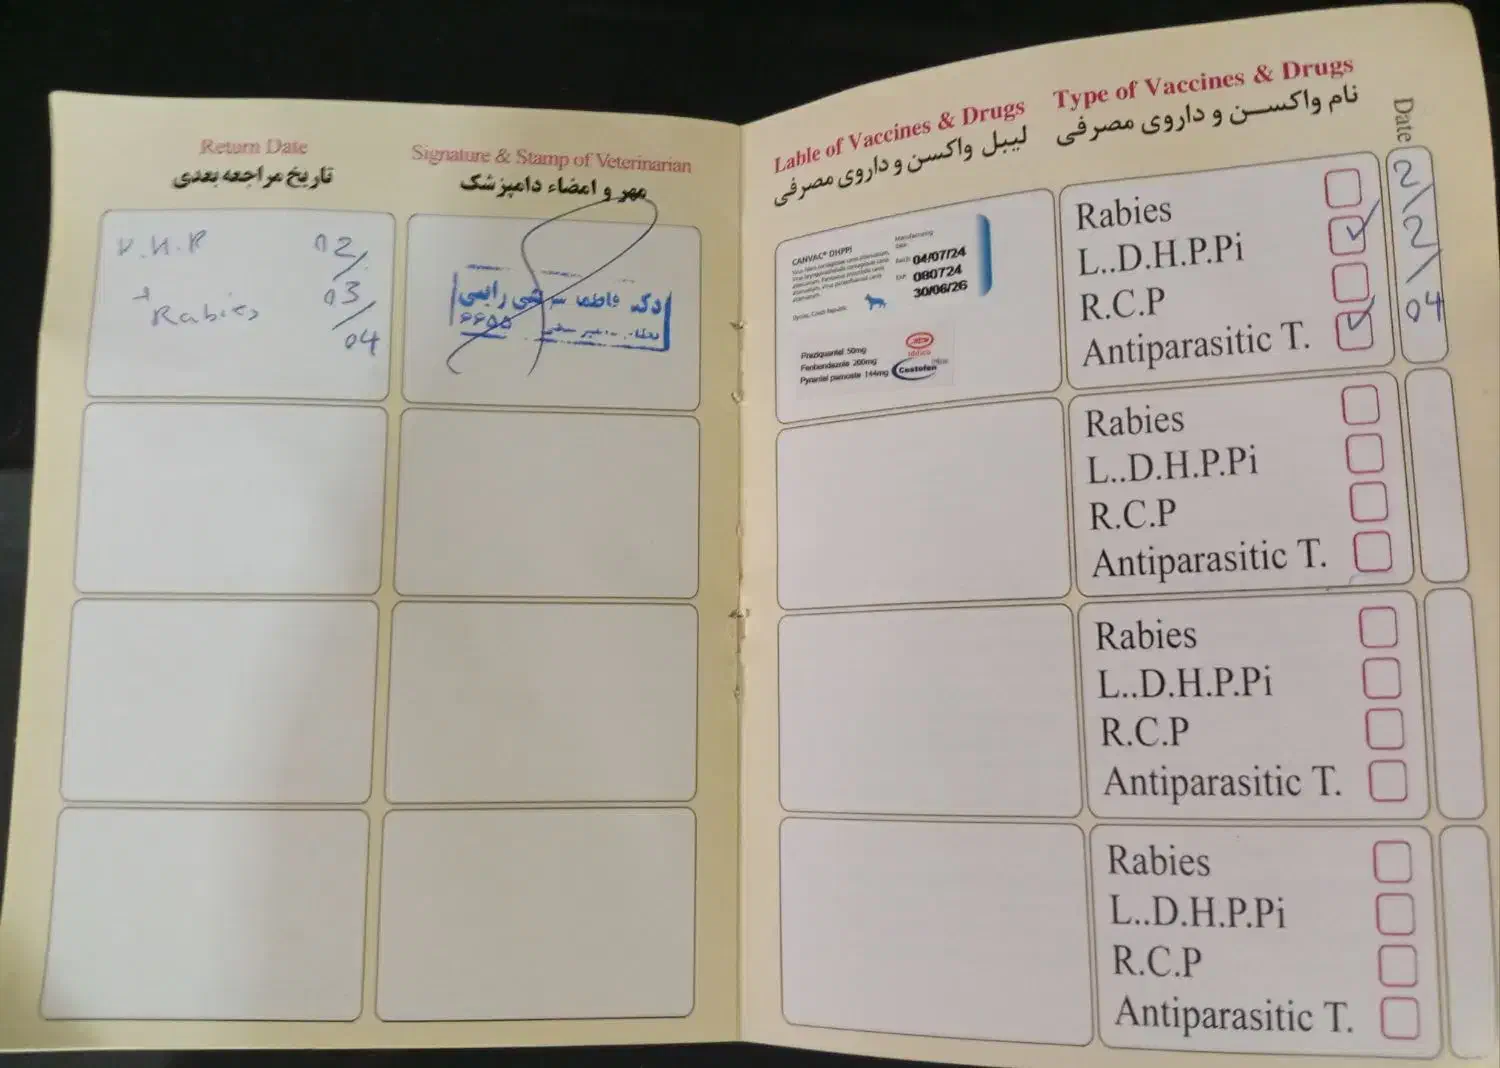 Return Date
تاریخ مراجعه بعدی
Signature & Stamp of Veterinarian
مهر و امضاء دامپزشک
D.H.P
+ Rabies
02/
03/
04
دکتر فاطمه
۶۶۵۵
Lable of Vaccines & Drugs
لیبل واکسن و داروی مصرفی
Type of Vaccines & Drugs
نام واکسن و داروی مصرفی
Date
CANVAC® DHPPi
Manufacturing
04/07/24
080724
EXP. 30/06/26
Czech Republic
Praziquantel 50mg
Fenbendazole 200mg
Pyrantel pamoate 144mg
Rabies
L..D.H.P.Pi
R.C.P
Antiparasitic T.
2/2/04
Rabies
L..D.H.P.Pi
R.C.P
Antiparasitic T.
Rabies
L..D.H.P.Pi
R.C.P
Antiparasitic T.
Rabies
L..D.H.P.Pi
R.C.P
Antiparasitic T.